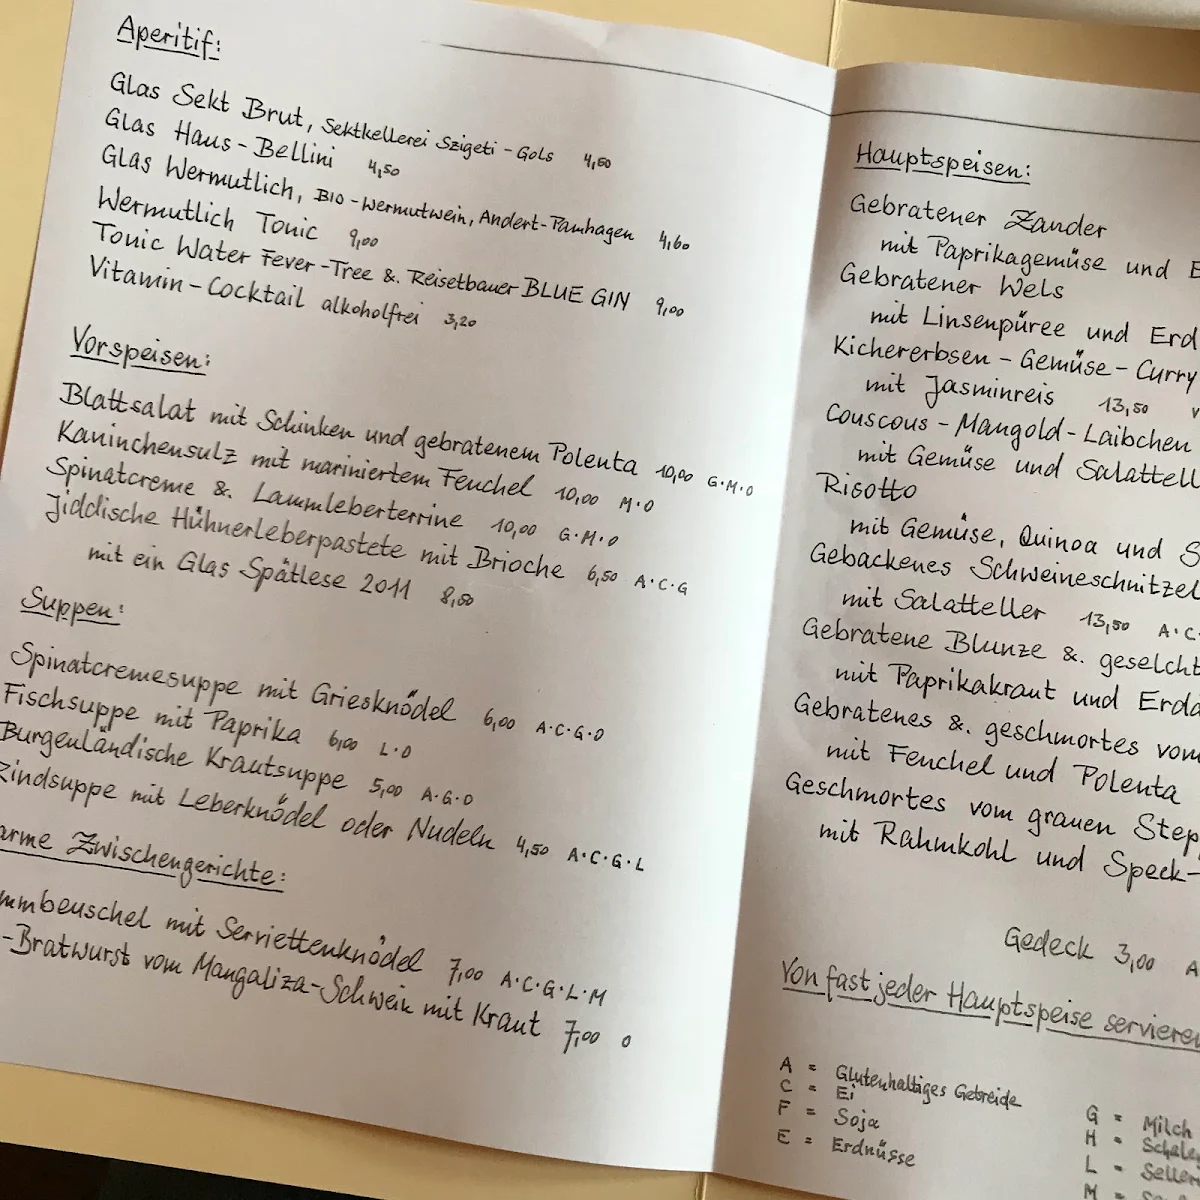 Aperitif:
Glas Sekt Brut, Sektkellerei Szigeti - Gols 4,50
Glas Haus - Bellini 4,50
Glas Wermutlich, BIO - Wermutwein, Andert - Pamhagen 4,60
Wermutlich Tonic 9,00
Tonic Water Fever - Tree &. Reisetbauer BLUE GIN 9,00
Vitamin - Cocktail alkoholfrei 3,20
Vorspeisen:
Blattsalat mit Schinken und gebratenem Polenta 10,00 G·M·O
Kaninchensulz mit mariniertem Fenchel 10,00 M·O
Spinatcreme &. Lammleberterrine 10,00 G·M·O
Jiddische Hühnerleberpastete mit Brioche 6,50 A·C·G
mit ein Glas Spätlese 2011 8,50
Suppen:
Spinatcremesuppe mit Griesknödel 6,00 A·C·G·O
Fischsuppe mit Paprika 6,00 L·O
Burgenländische Krautsuppe 5,00 A·G·O
Rindsuppe mit Leberknödel oder Nudeln 4,50 A·C·G·L
arme Zwischengerichte:
mmbeuschel mit Serviettenknödel 7,00 A·C·G·L·M
- Bratwurst vom Mangaliza - Schwein mit Kraut 7,00 O
Hauptspeisen:
Gebratener Zander
mit Paprikagemüse und E
Gebratener Wels
mit Linsenpüree und Erd
Kichererbsen - Gemüse - Curry
mit Jasminreis 13,50 v
Couscous - Mangold - Laibchen
mit Gemüse und Salattell
Risotto
mit Gemüse, Quinoa und S
Gebackenes Schweineschnitzel
mit Salatteller 13,50 A·C·
Gebratene Blunze &. geselcht
mit Paprikakraut und Erda
Gebratenes &. geschmortes vom
mit Fenchel und Polenta
Geschmortes vom grauen Step
mit Rahmkohl und Speck -
Gedeck 3,00 A
Von fast jeder Hauptspeise serviere
A = Glutenhaltiges Getreide
C = Ei
F = Soja
E = Erdnüsse
G = Milch
H = Schale
L = Selleri
M =